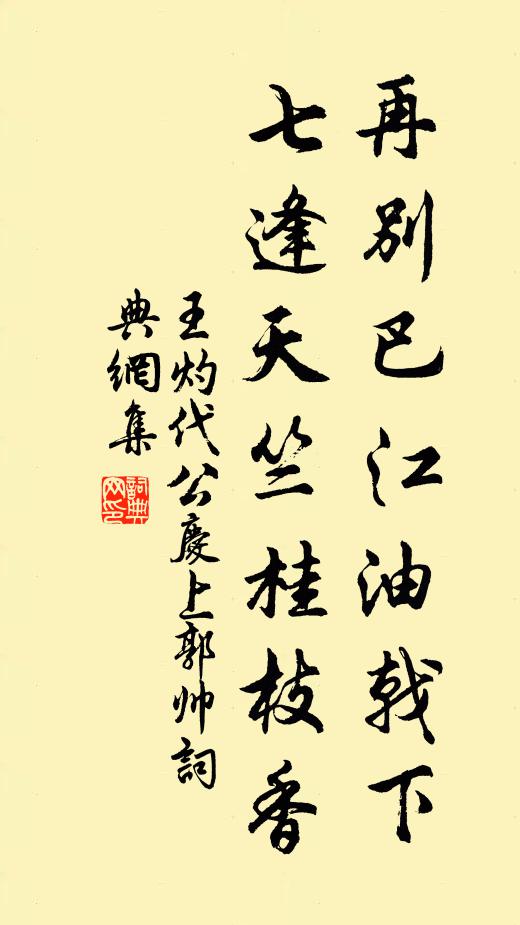 再别巴江油戟下
七逢天竺桂枝香
王灼代公慶上郭帅詞
典網集
詞典網印